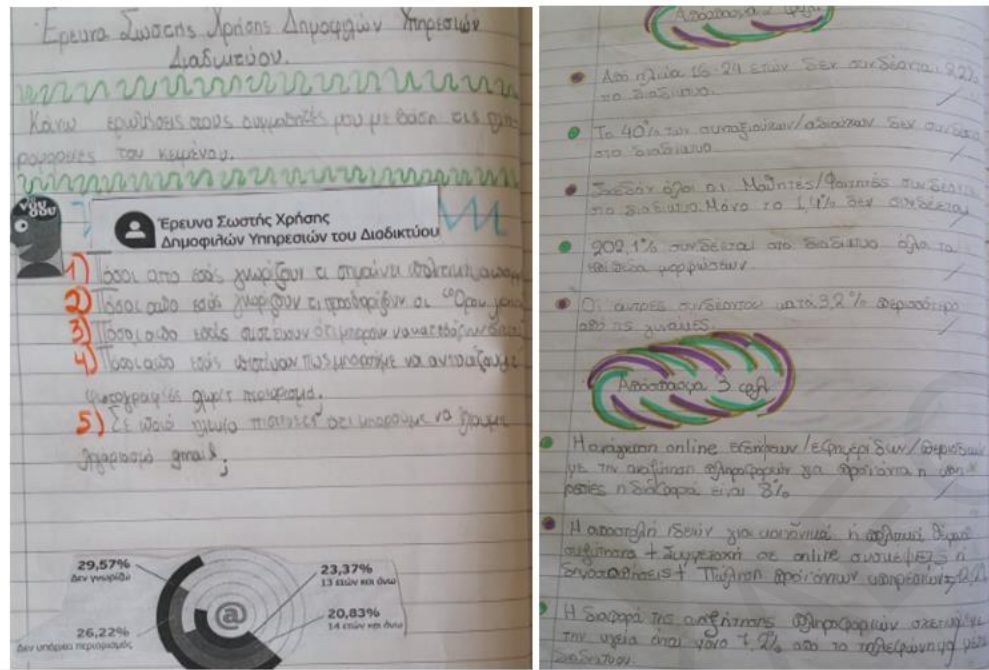 Έρευνα Σωστής Χρήσης Δημοφιλών Υπηρεσιών
Διαδικτύου.
Κάνω ερωτήσεις στους συμμαθητές μου με βάση τις πλη-
ροφορίες του κειμένου.
Έρευνα Σωστής Χρήσης
Δημοφιλών Υπηρεσιών του Διαδικτύου
1) Πόσοι από εσάς γνωρίζουν τι σημαίνει
2) Πόσοι από εσάς γνωρίζουν τι προσδιορίζουν οι "Όροι
3) Πόσοι από εσάς πιστεύουν ότι μπορούν να
4) Πόσοι από εσάς πιστεύουν πως μπορούμε να ανταλλάζουμε
φωτογραφίες χωρίς περιορισμό.
5) Σε ποιά ηλικία πιστεύετε ότι μπορούμε να έχουμε
λογαριασμό gmail;
29,57%
Δεν γνωρίζω
23,37%
13 ετών και άνω
20,83%
14 ετών και άνω
26,22%
Δεν υπάρχει περιορισμός
Απόσπασμα 2
Από ηλικία 16-24 ετών δεν συνδέεται
στο διαδίκτυο.
Το 40% των συνταξιούχων/ δεν
στο διαδίκτυο
Σχεδόν όλοι οι Μαθητές/Φοιτητές
στο διαδίκτυο. Μόνο το 1,4% δεν συνδέεται
202,1% συνδέεται στο διαδίκτυο όλα τα
επίπεδα μορφώσεων
Οι άντρες συνδέονται κατά 3,2% περισσότερο
από τις γυναίκες.
Απόσπασμα 3
Η ανάγνωση online ειδήσεων/εφημερίδων/
με την αναζήτηση πληροφοριών για προϊόντα ή
η διαφορά είναι 8%
Η αποστολή ιδεών για κοινωνικά ή πολιτικά
+ Συμμετοχή σε online ή
+ Πώληση προϊόντων υπηρεσιών
Η διαφορά της αναζήτησης πληροφοριών
την υγεία είναι μόνο 7,2% από το
διαδικτύου.